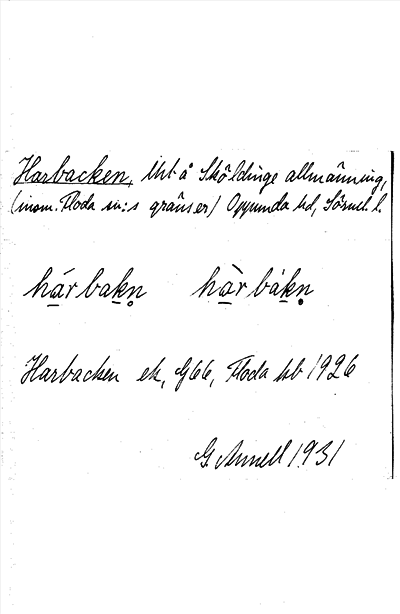 Harbacken, Utb å Sköldinge allmänning,
(inom Floda sn:s gränser) Oppunda hd, Söml. l.
hárbakn hàrbákn
Harbacken ek, G66, Floda kb 1926
G. Annell 1931